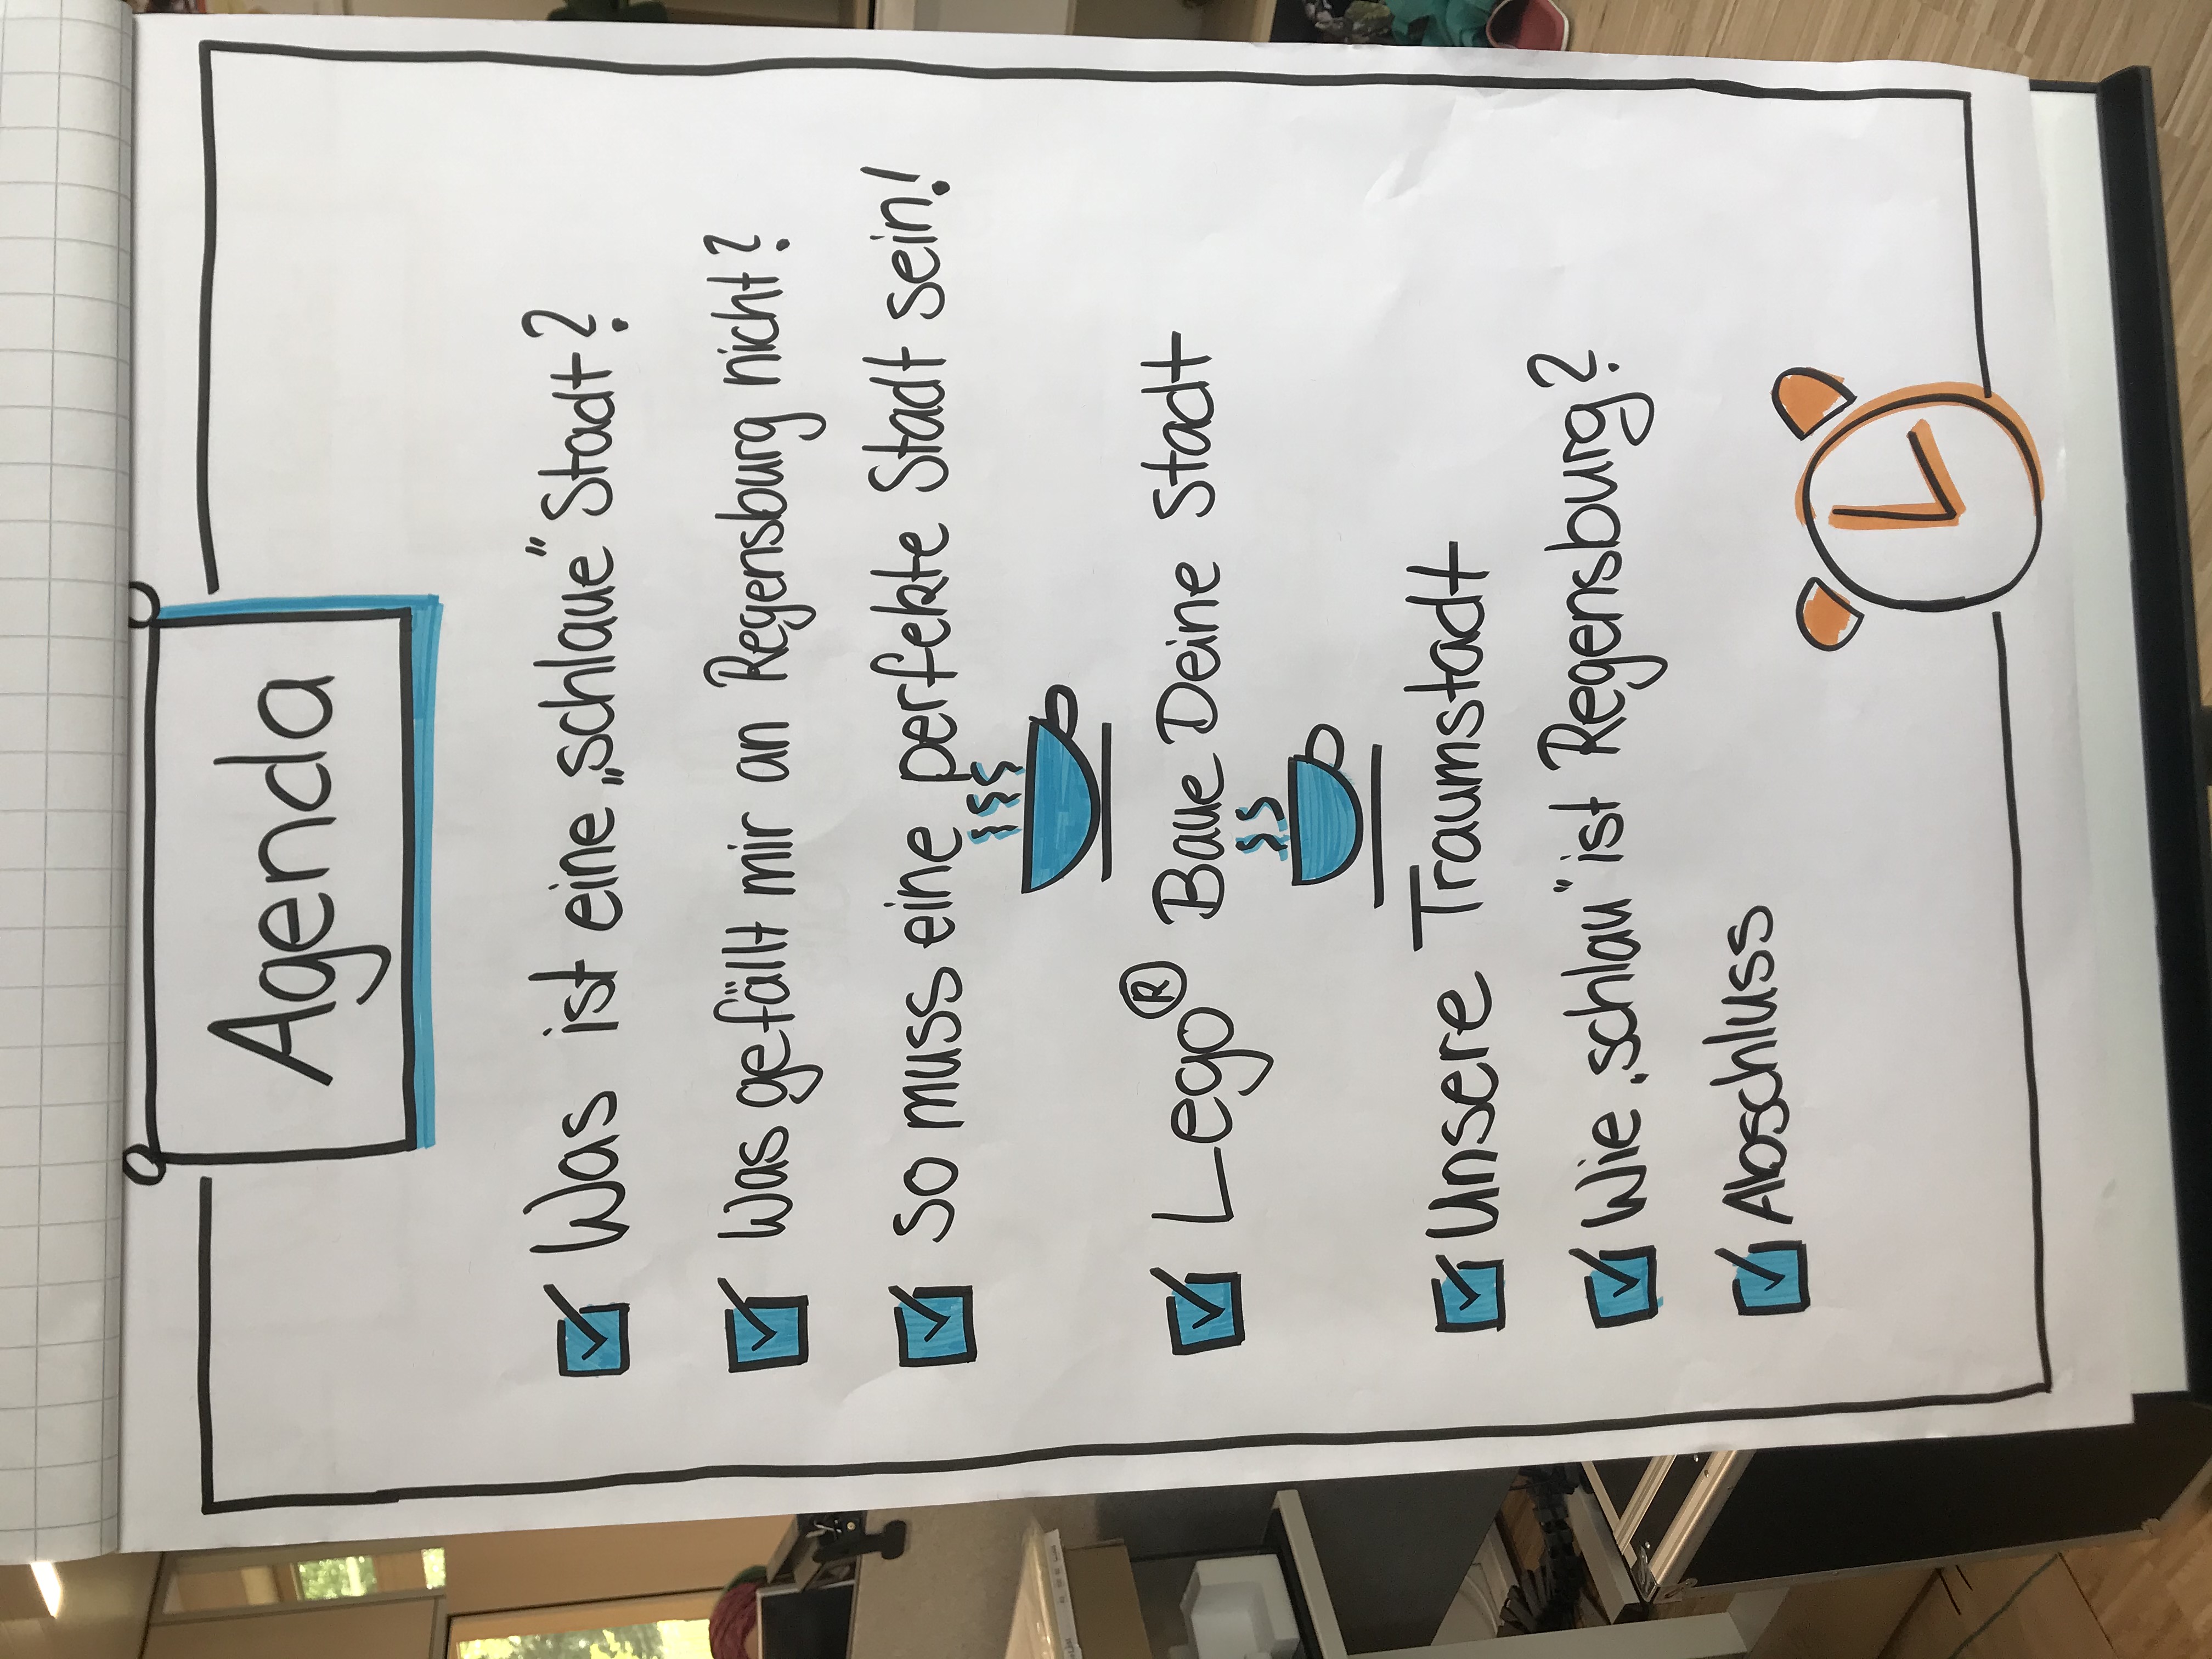 Agenda
Was ist eine „schlaue" Stadt?
Was gefällt mir an Regensburg nicht?
So muss eine perfekte Stadt sein!
Lego® Baue Deine Stadt
Unsere Traumstadt
Wie „schlau" ist Regensburg?
Abschluss